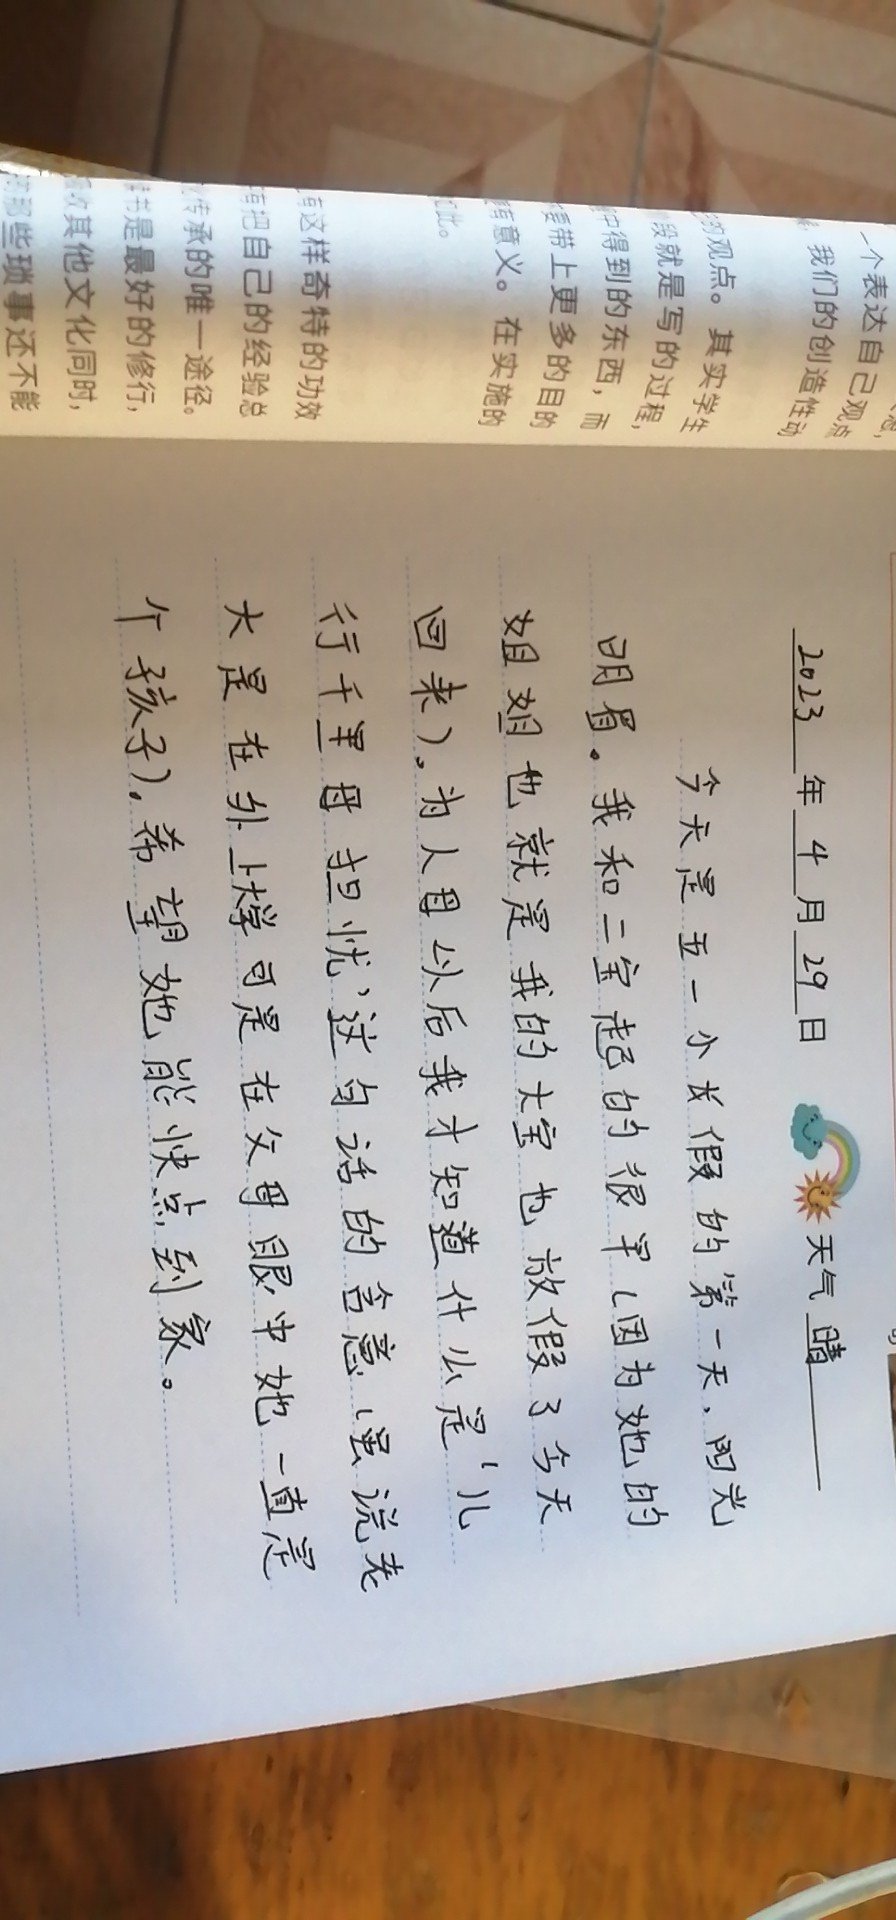 一个表达自己观点
我们的创造性动
的观点。其实学生
段就是写的过程,
中得到的东西，而
要带上更多的目的
有意义。在实施的
此。
有这样奇特的功效
有把自己的经验总
传承的唯一途径。
书是最好的修行,
其他文化同时,
那些琐事还不能
2023年4月29日 天气晴
今天是五一小长假的第一天,阳光
明眉。我和二宝起的很早(因为她的
姐姐也就是我的大宝也放假了今天
回来)。为人母以后我才知道什么是'儿
行千里母担忧,这句话的含意(虽说老
大是在外上大学可是在父母眼中她一直是
个孩子),希望她能快点到家。